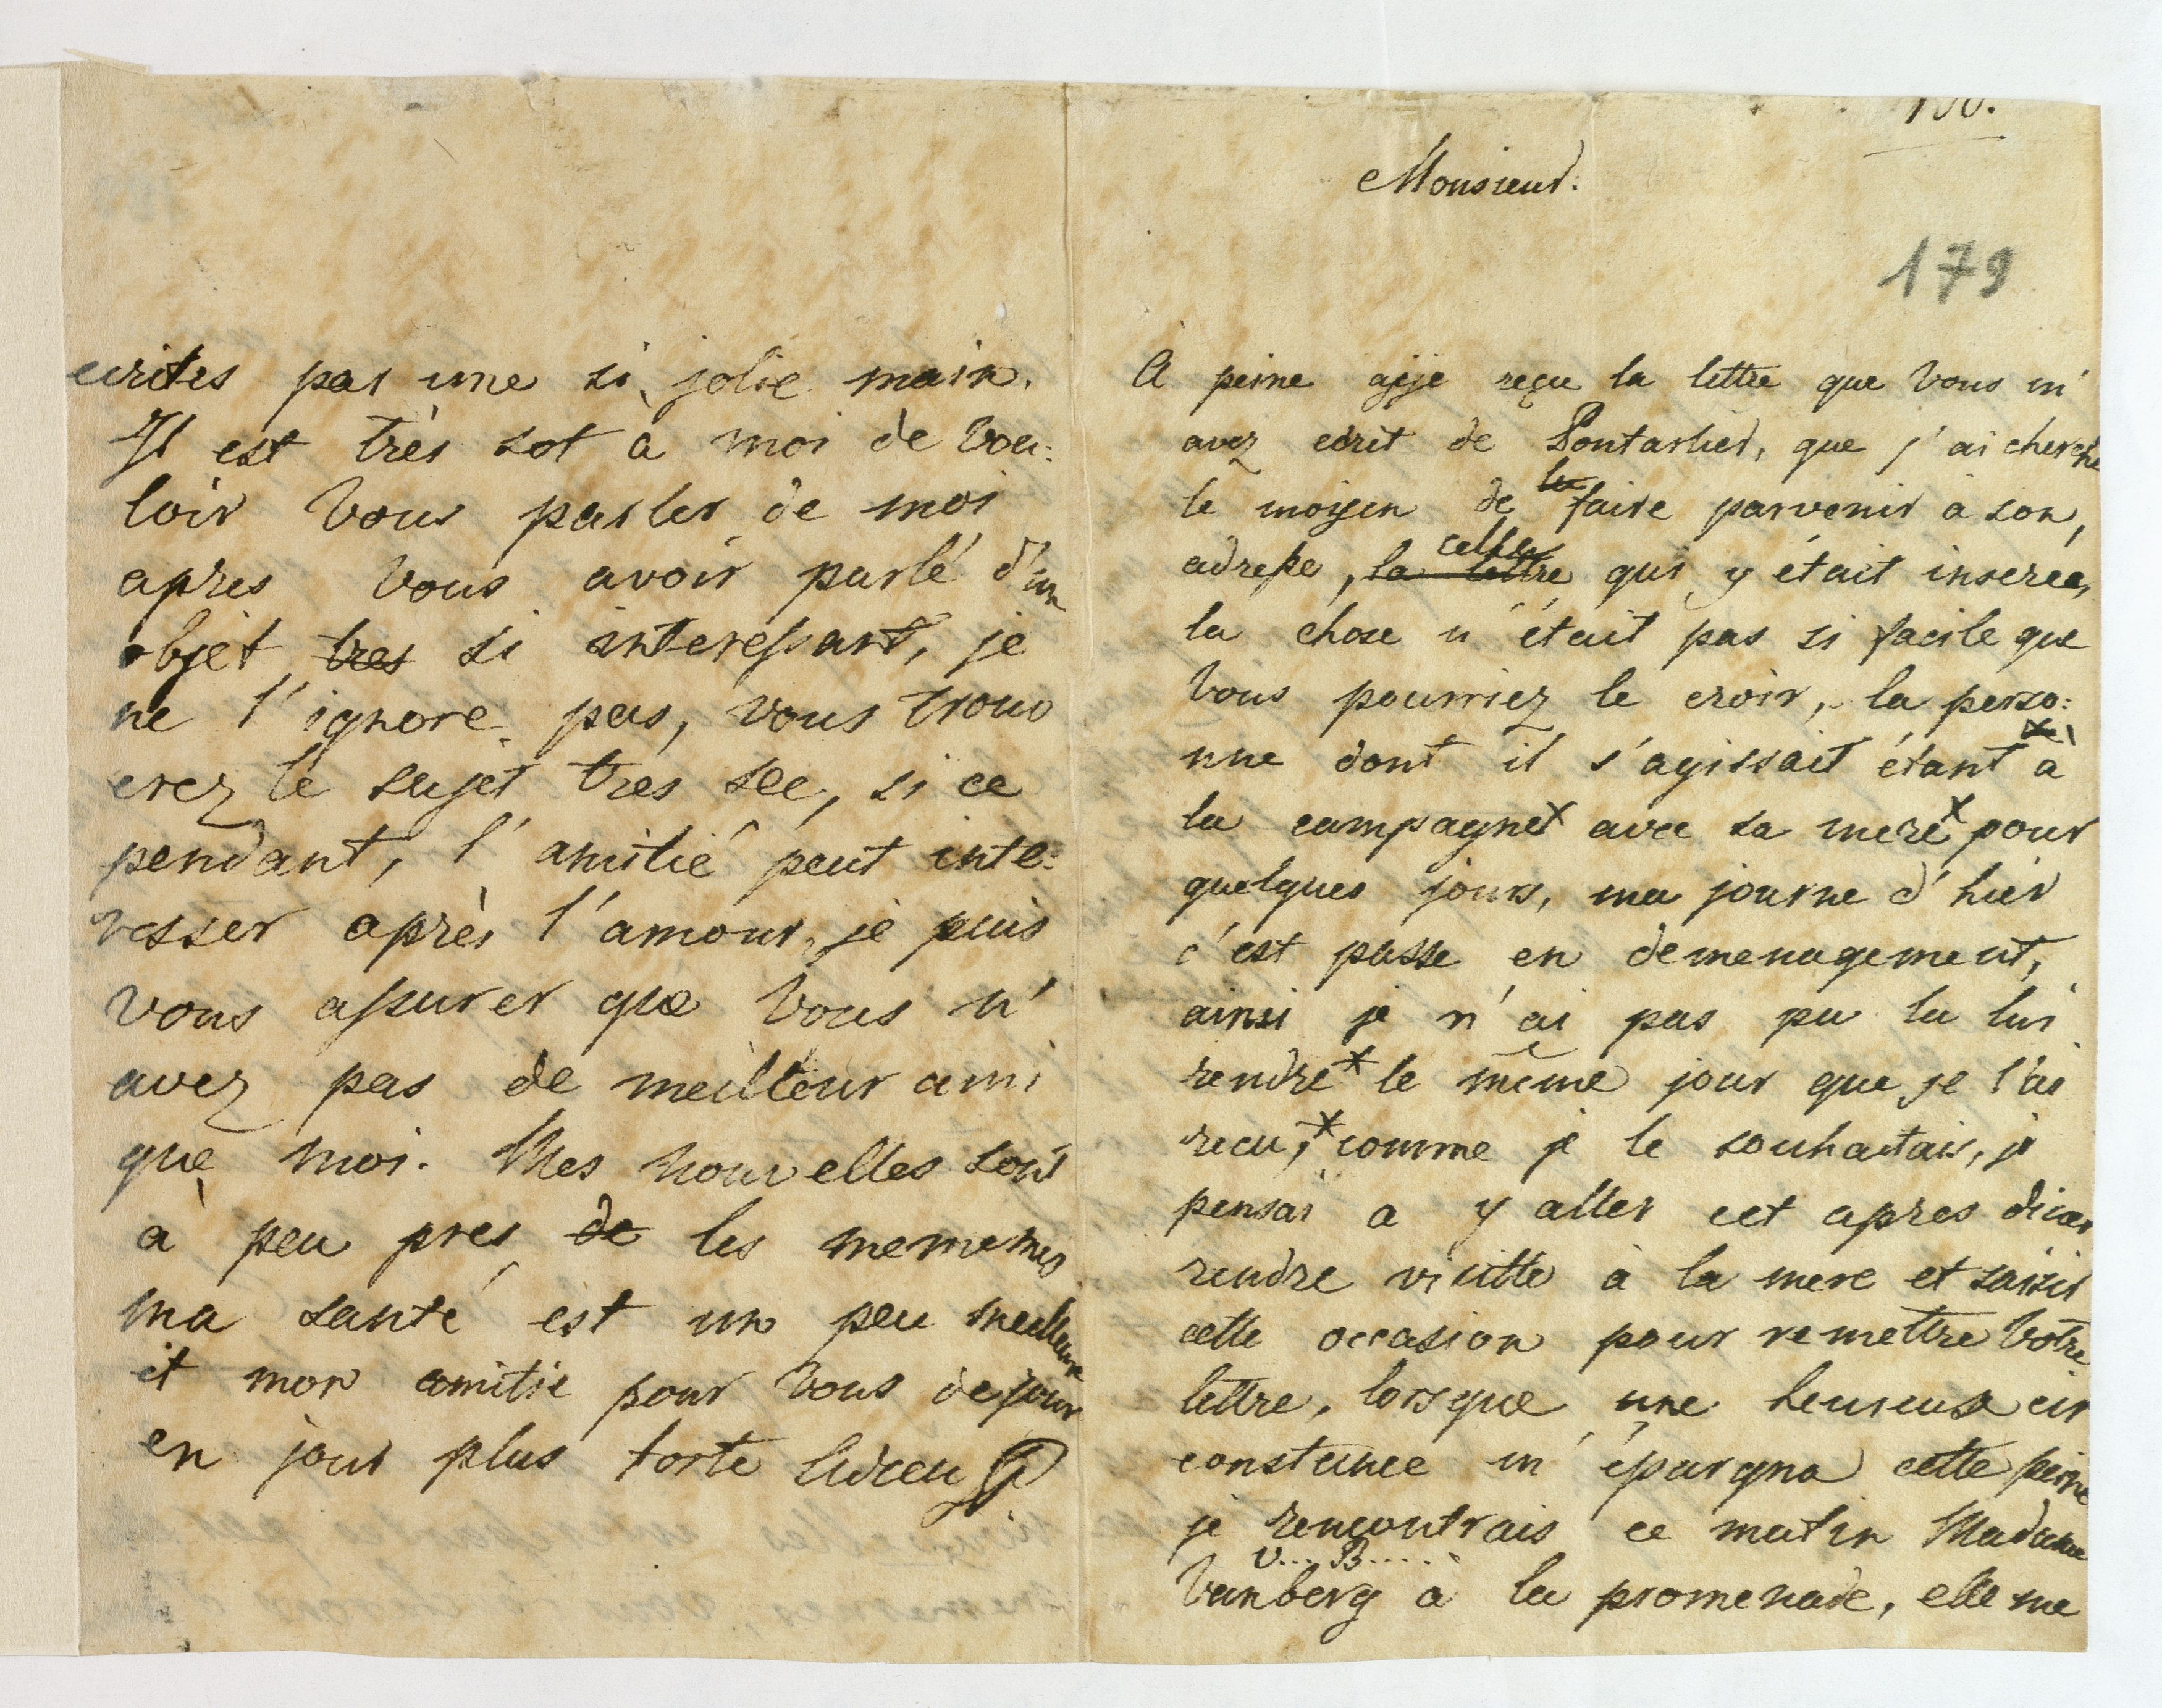 ecrites par une si jolie main.
Il est très sot à moi de vou:
loir vous parler de moi
apres vous avoir parlé d'un
objet tres si interessant, je
ne l'ignore pas, vous trouv
erez le sujet tres sec, si ce
pendant, l'amitié peut inte:
resser après l'amour, je puis
vous assurer que vous n'
avez pas de meilleur ami
que moi. Mes nouvelles sont
à peu pres de les mememes
ma santé est un peu meilleure
et mon amitie pour vous de jour
en jour plus forte Adieu
100.
Monsieur.
179
A peine ajje reçu la lettre que vous m'
avez ecrit de Pontarlier, que j'ai cherche
le moijen de la faire parvenir à son,
adresse, la lettre celle qui y était inserée,
la chose n'était pas si facile que
vous pourriez le croir, la perso:
nne dont il s'agissait étant x à
la campagne x avec sa mere x pour
quelques jours, ma journe d'hier
c'est passe en demenagement,
ainsi je n'ai pas pu la lui
rendre x le même jour que je l'ai
recu, x comme je le souhaitais, je
pensai a y aller cet apres diner
rendre vicitte à la mere et saisir
cette occasion pour remettre votre
lettre, lorsque une heureuse cir
constance m'épargna cette peine
je rencontrais ce matin Madame
V... B.....
Vanberg à la promenade, elle me